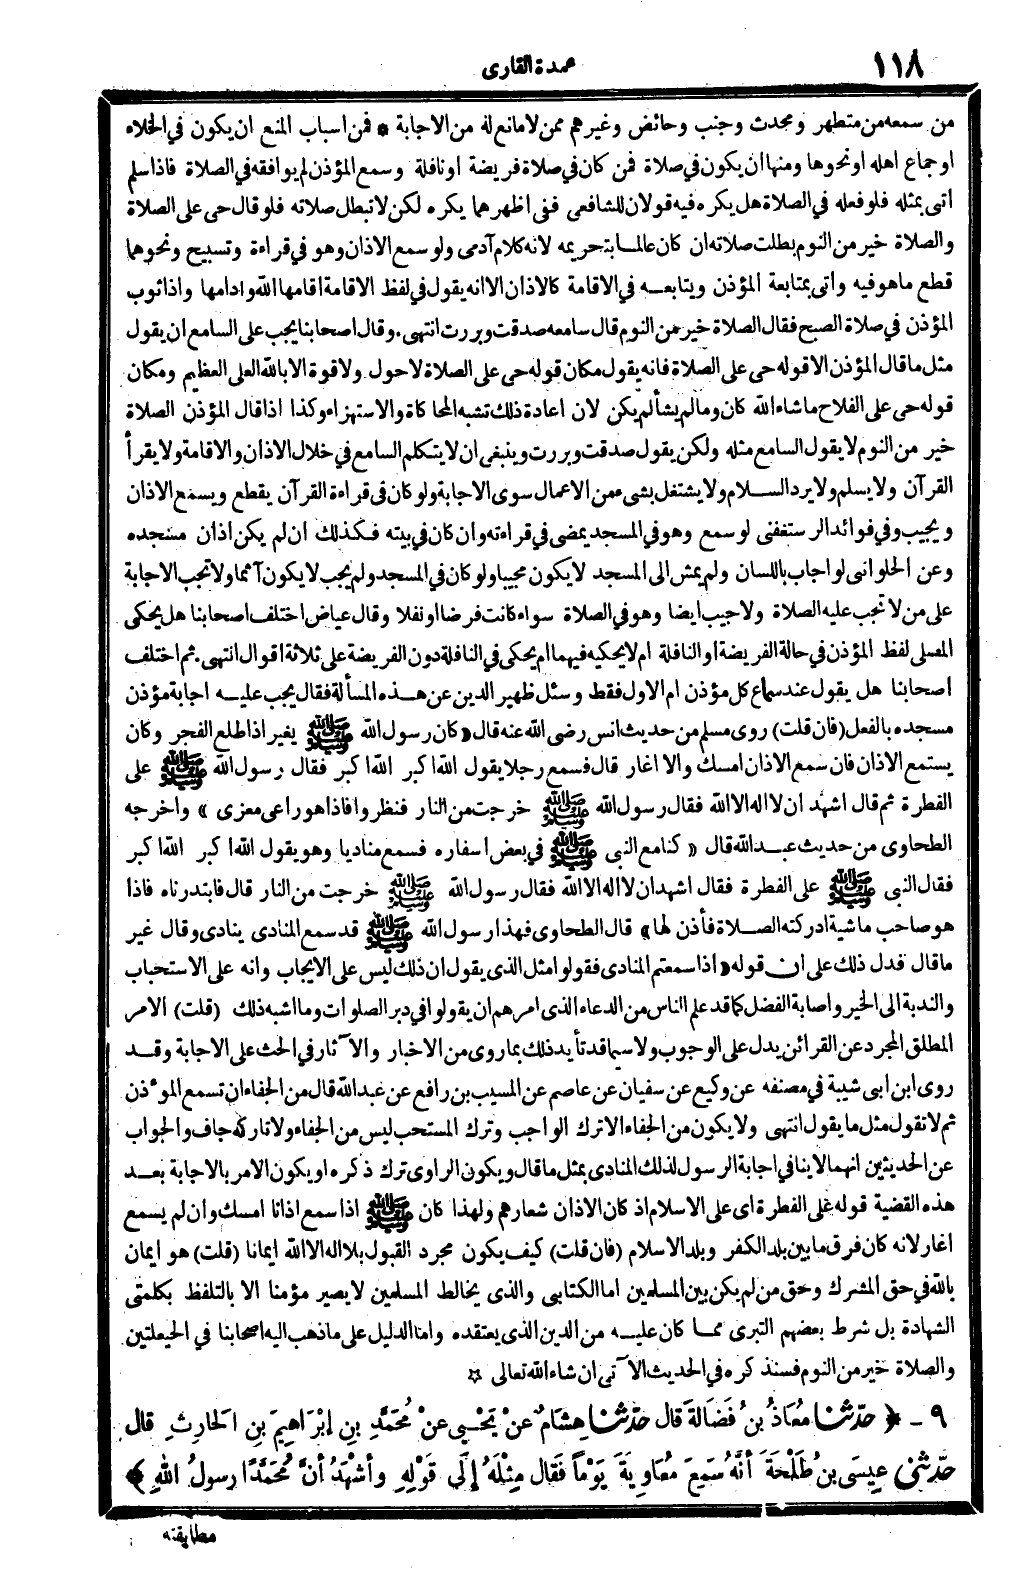 ١١٨
عمدة القارى
من سمعه من متطهر ومحدث وجنب وحائض وغيرهم ممن لا مانع له من الاجابة * فمن اسباب المنع ان يكون في الخلاء
او جماع اهله او نحوها ومنها ان يكون في صلاة فمن كان في صلاة فريضة او نافلة وسمع المؤذن لم يوافقه في الصلاة فاذا سلم
اتى بمثله فلو فعله في الصلاة هل يكره فيه قولان للشافعى فى اظهرهما يكره لكن لا تبطل صلاته فلو قال حى على الصلاة
والصلاة خير من النوم بطلت صلاته ان كان عالما بتحريمه لانه كلام آدمى ولو سمع الاذان وهو في قراءة وتسبيح ونحوهما
قطع ما هو فيه واتى بمتابعة المؤذن ويتابعه في الاقامة كالاذان الا انه يقول في لفظ الاقامة اقامها الله وادامها واذا ثوب
المؤذن في صلاة الصبح فقال الصلاة خير من النوم قال سامعه صدقت وبررت انتهى . وقال اصحابنا يجب على السامع ان يقول
مثل ما قال المؤذن الا قوله حى على الصلاة فانه يقول مكان قوله حى على الصلاة لا حول ولا قوة الا بالله العلى العظيم ومكان
قوله حى على الفلاح ما شاء الله كان وما لم يشأ لم يكن لان اعادة ذلك تشبه المحاكاة والاستهزاء وكذا اذا قال المؤذن الصلاة
خير من النوم لا يقول السامع مثله ولكن يقول صدقت وبررت وينبغى ان لا يتكلم السامع في خلال الاذان والاقامة ولا يقرأ
القرآن ولا يسلم ولا يرد السلام ولا يشتغل بشىء من الاعمال سوى الاجابة ولو كان فى قراءة القرآن يقطع ويسمع الاذان
ويجيب وفي فوائد الرستغفنى لو سمع وهو في المسجد يمضى في قراءته وان كان في بيته فكذلك ان لم يكن اذان مسجده
وعن الحلوانى لو اجاب باللسان ولم يمش الى المسجد لا يكون مجيبا ولو كان في المسجد ولم يجب لا يكون آثما ولا تجب الاجابة
على من لا تجب عليه الصلاة ولا جيب ايضا وهو في الصلاة سواء كانت فرضا او نفلا وقال عياض اختلف اصحابنا هل يحكى
المصلى لفظ المؤذن في حالة الفريضة او النافلة ام لا يحكيه فيهما ام يحكى في النافلة دون الفريضة على ثلاثة اقوال انتهى . ثم اختلف
اصحابنا هل يقول عند سماع كل مؤذن ام الاول فقط وسئل ظهير الدين عن هذه المسألة فقال يجب عليه اجابة مؤذن
مسجده بالفعل (فان قلت) روى مسلم من حديث انس رضى الله عنه قال «كان رسول الله ﷺ يغير اذا طلع الفجر وكان
يستمع الاذان فان سمع الاذان امسك والا اغار قال فسمع رجلا يقول الله اكبر الله اكبر فقال رسول الله ﷺ على
الفطرة ثم قال اشهد ان لا اله الا الله فقال رسول الله ﷺ خرجت من النار فنظروا فاذا هو راعى معزى » واخرجه
الطحاوى من حديث عبد الله قال « كنا مع النبى ﷺ في بعض اسفاره فسمع مناديا وهو يقول الله اكبر الله اكبر
فقال النبى ﷺ على الفطرة فقال اشهد ان لا اله الا الله فقال رسول الله ﷺ خرجت من النار قال فابتدرناه فاذا
هو صاحب ماشية ادركته الصلاة فأذن لها» قال الطحاوى فهذا رسول الله ﷺ قد سمع المنادى ينادى وقال غير
ما قال فدل ذلك على ان قوله «اذا سمعتم المنادى فقولوا مثل الذى يقول ان ذلك ليس على الايجاب وانه على الاستحباب
والندبة الى الخير واصابة الفضل كما قد علم الناس من الدعاء الذى امرهم ان يقولوا في دبر الصلوات وما اشبه ذلك (قلت) الامر
المطلق المجرد عن القرائن يدل على الوجوب ولا سيما قد تأيد ذلك بما روى من الاخبار والآثار في الحث على الاجابة وقد
روى ابن ابى شيبة في مصنفه عن وكيع عن سفيان عن عاصم عن المسيب بن رافع عن عبد الله قال من الجفاء ان تسمع المؤذن
ثم لا تقول مثل ما يقول انتهى ولا يكون من الجفاء الا ترك الواجب وترك المستحب ليس من الجفاء ولا تاركه جاف والجواب
عن الحديثين انهما لا ينافى اجابة الرسول لذلك المنادى بمثل ما قال ويكون الراوى ترك ذكره او يكون الامر بالاجابة بعد
هذه القضية قوله على الفطرة اى على الاسلام اذ كان الاذان شعارهم ولهذا كان ﷺ اذا سمع اذانا امسك وان لم يسمع
اغار لانه كان فرق ما بين بلد الكفر وبلد الاسلام (فان قلت) كيف يكون مجرد القبول بلا اله الا الله ايمانا (قلت) هو ايمان
بالله في حق المشرك وحق من لم يكن بين المسلمين اما الكتابى والذى يخالط المسلمين لا يصير مؤمنا الا بالتلفظ بكلمتى
الشهادة بل شرط بعضهم التبرى مما كان عليه من الدين الذى يعتقده واما الدليل على ما ذهب اليه اصحابنا في الحيعلتين
والصلاة خير من النوم فسنذكره في الحديث الآتى ان شاء الله تعالى ☆
٩ - ﴿ حَدَّثَنَا مُعَاذُ بْنُ فَضَالَةَ قَالَ حَدَّثَنَا هِشَامٌ عَنْ يَحْيَى عَنْ مُحَمَّدِ بنِ إِبْرَاهِيمَ بنِ الْحَارِثِ قال
حَدَّثَنِى عِيسَى بنُ طَلْحَةَ أَنَّهُ سَمِعَ مُعَاوِيَةَ يَوْماً فَقَالَ مِثْلَهُ إِلَى قَوْلِهِ وأَشْهَدُ أَنَّ مُحَمَّدًا رسولُ اللهِ ﴾
مطابقته